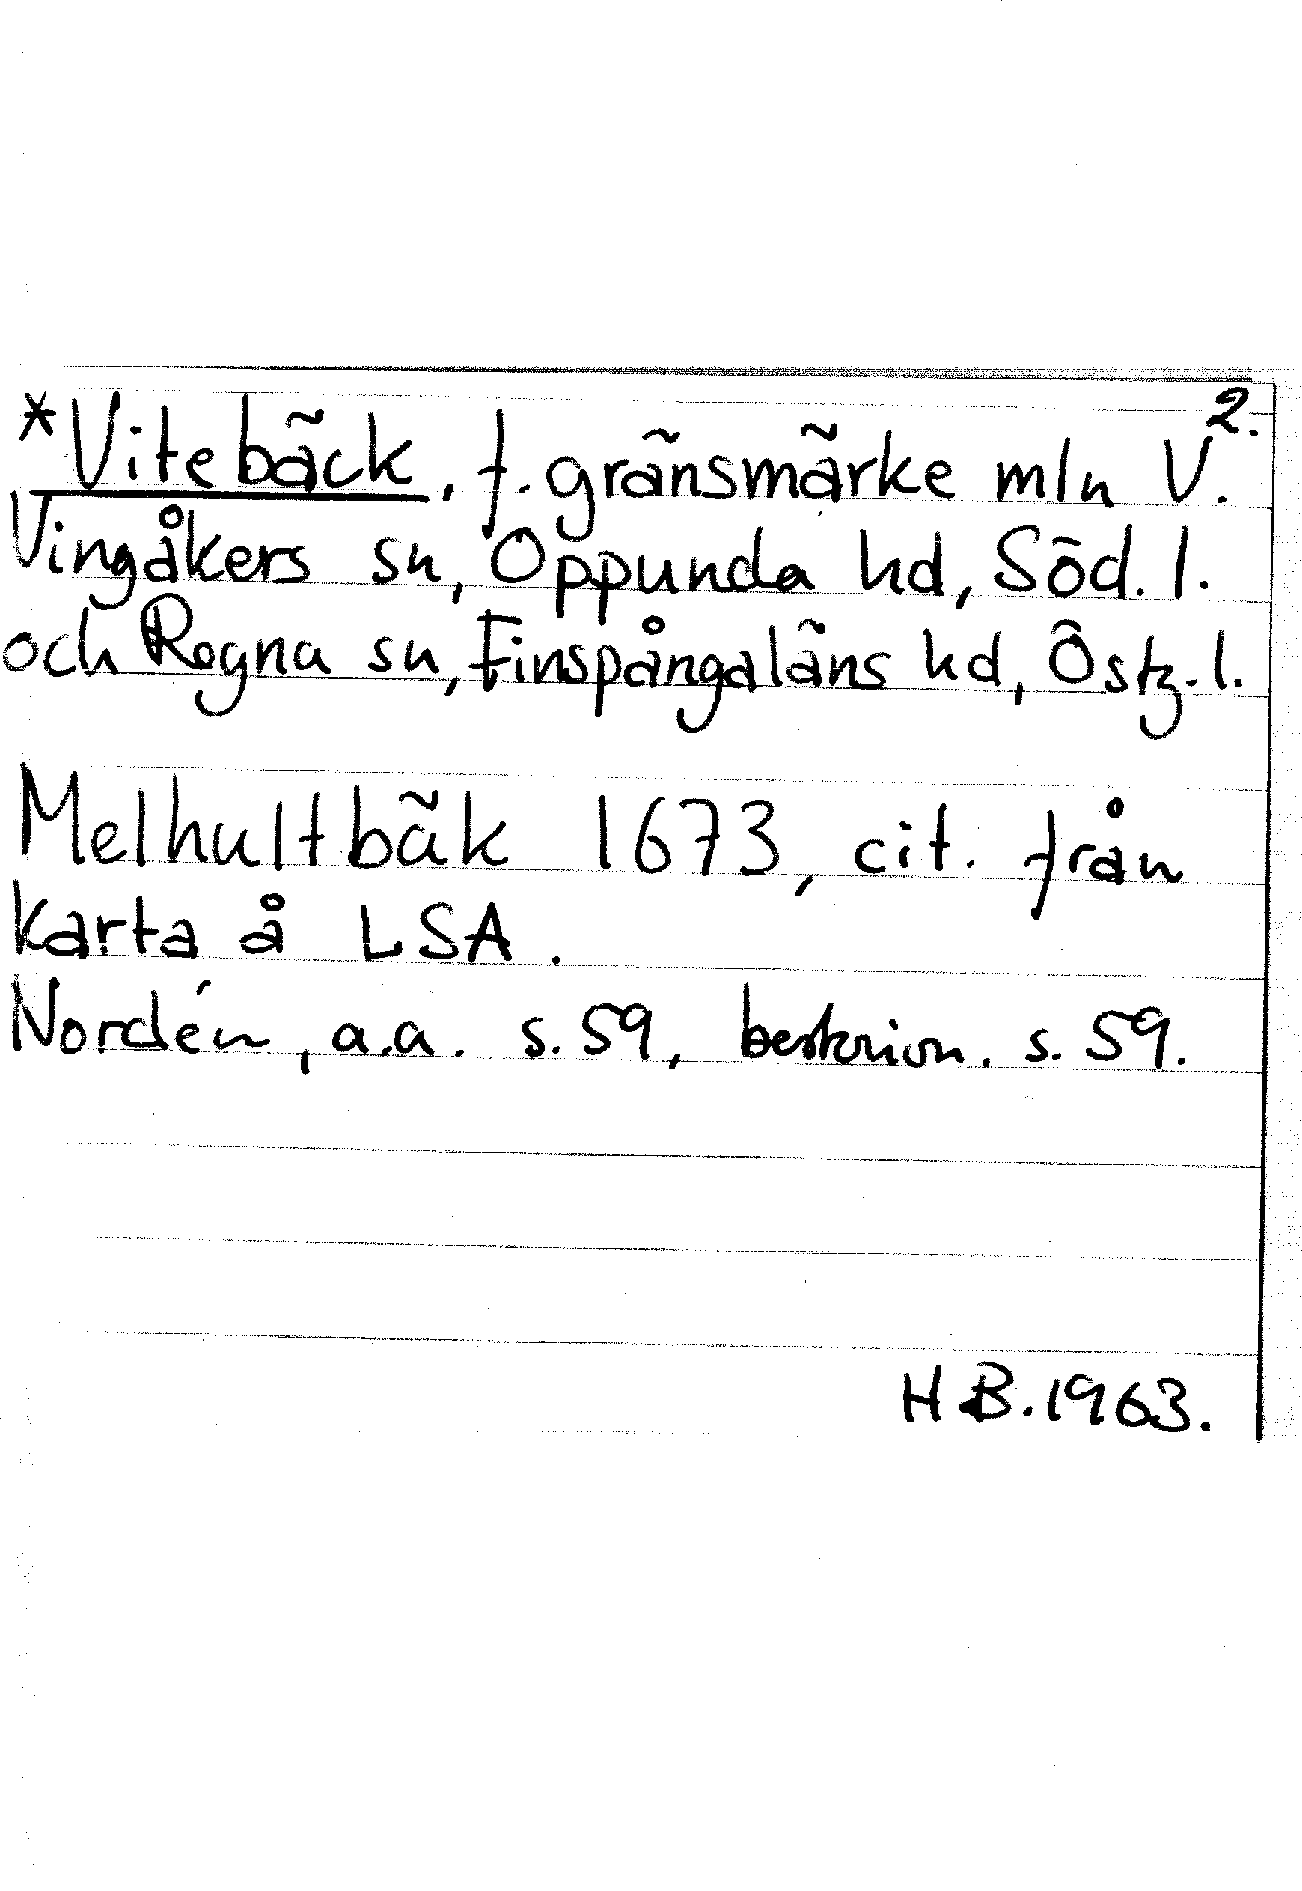 2.
*Vitebäck, f. gränsmärke mln V.
Vingåkers sn, Oppunda hd, Söd. l.
och Regna sn, Finspångaläns hd, Östg. l.
Melhultbäk 1673, cit. från
karta å LSA.
Nordén, a.a. s. 59, beskrivn. s. 59.
H B. 1963.